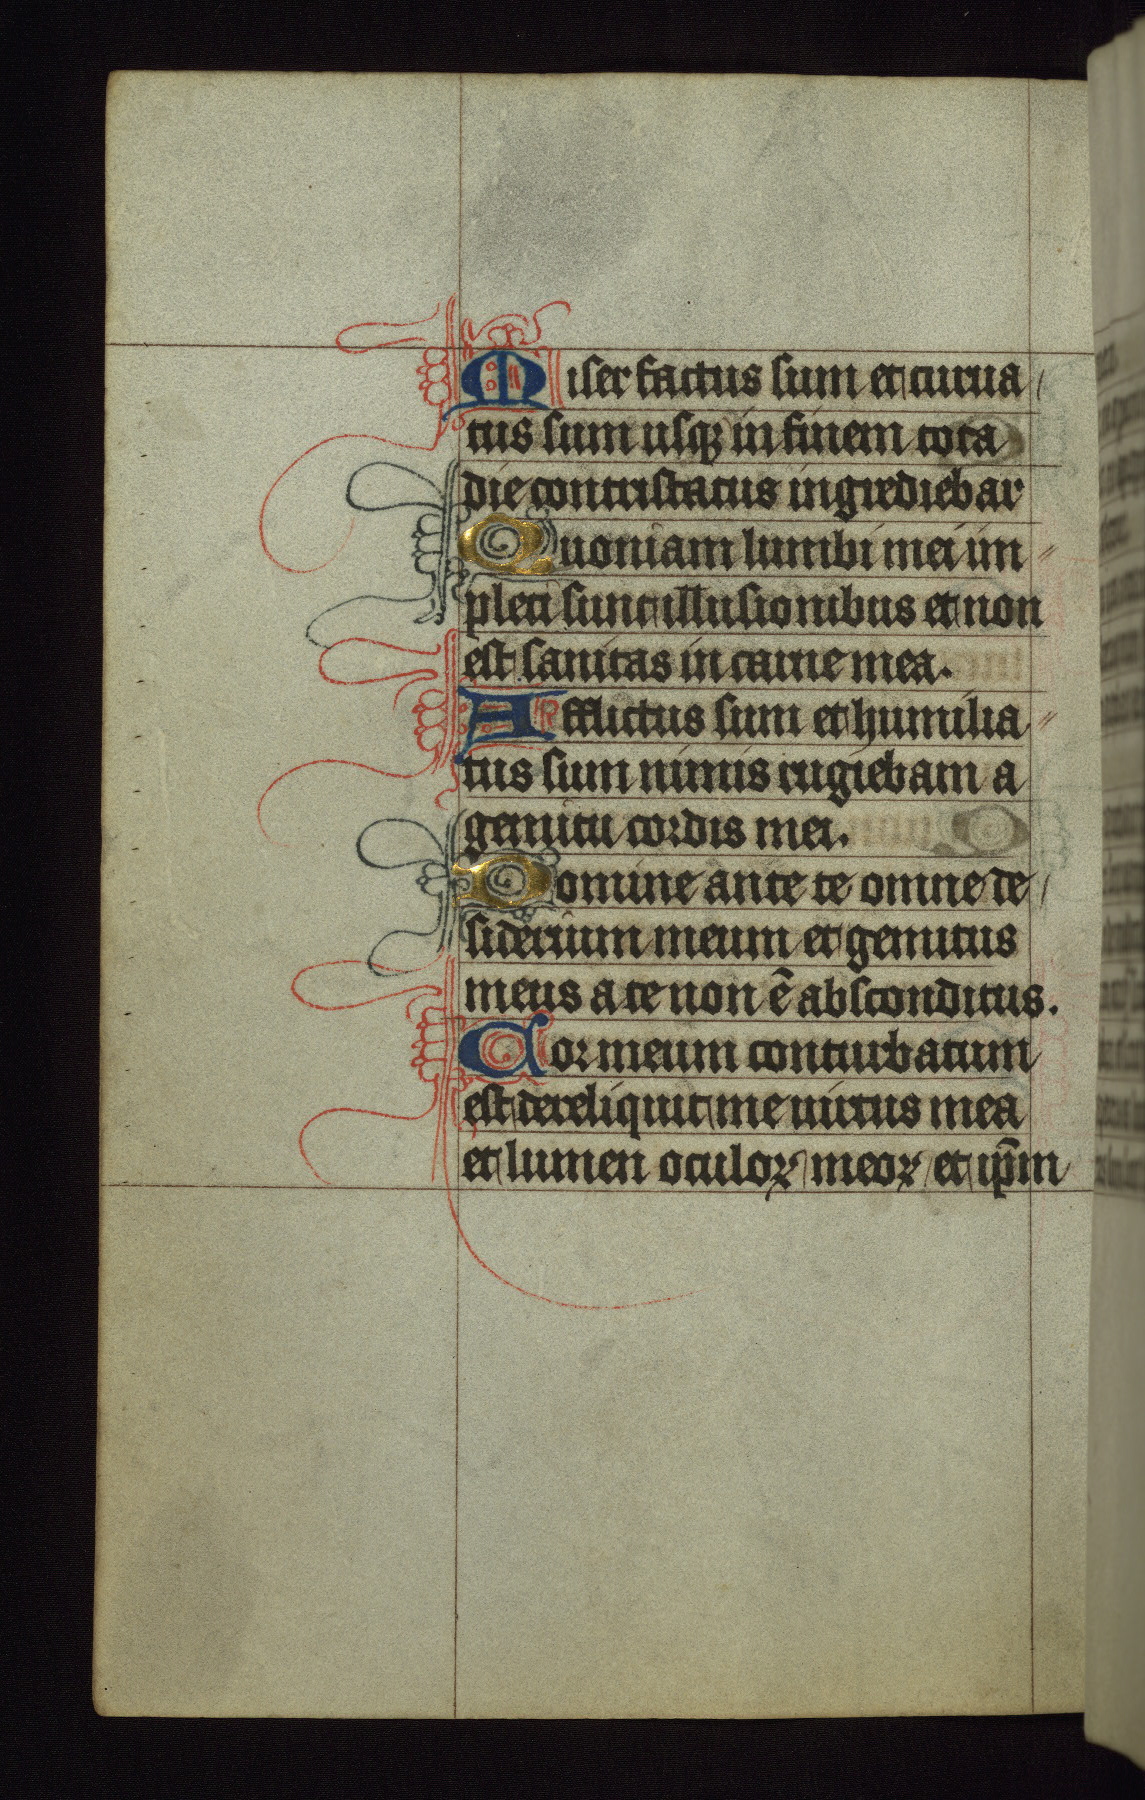 Miser factus sum et curua
tus sum usqꝫ in finem tota
die contristatus ingrediebar
Quoniam lumbi mei im
pleti sunt illusionibus et non
est sanitas in carne mea.
Afflictus sum et humilia
tus sum nimis rugiebam a
gemitu cordis mei.
Domine ante te omne de
siderium meum et gemitus
meus a te non ē absconditus.
Cor meum conturbatum
est dereliquit me uirtus mea
et lumen oculoꝝ meoꝝ et ip̄m